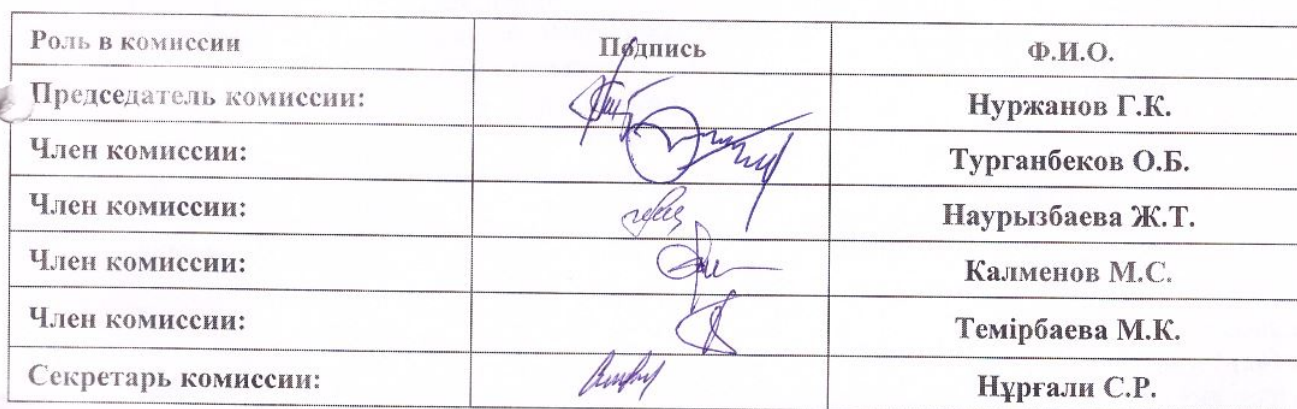 Роль в комиссии Подпись Ф.И.О.
Председатель комиссии: Нуржанов Г.К.
Член комиссии: Турганбеков О.Б.
Член комиссии: Наурызбаева Ж.Т.
Член комиссии: Калменов М.С.
Член комиссии: Темірбаева М.К.
Секретарь комиссии: Нұрғали С.Р.